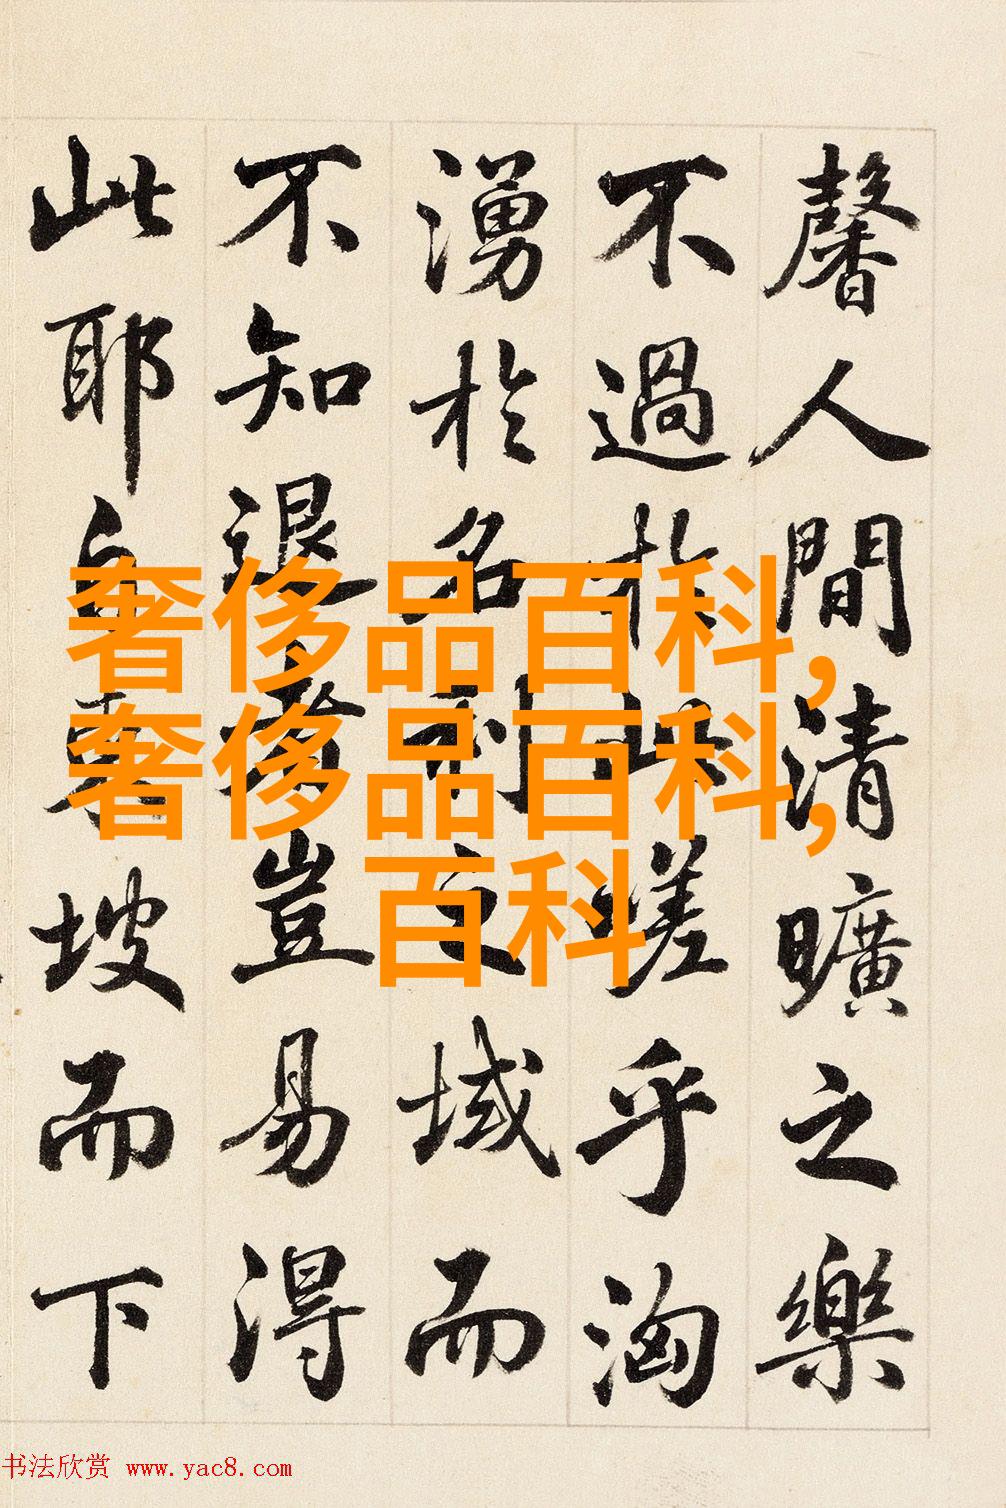 馨人間清曠之樂
不過於此嗟乎洶
湧於名利之域而
不知退者豈易得
此耶自東坡而下
奢侈品百科,
奢侈品百科,
百科
书法欣赏 www.yac8.com